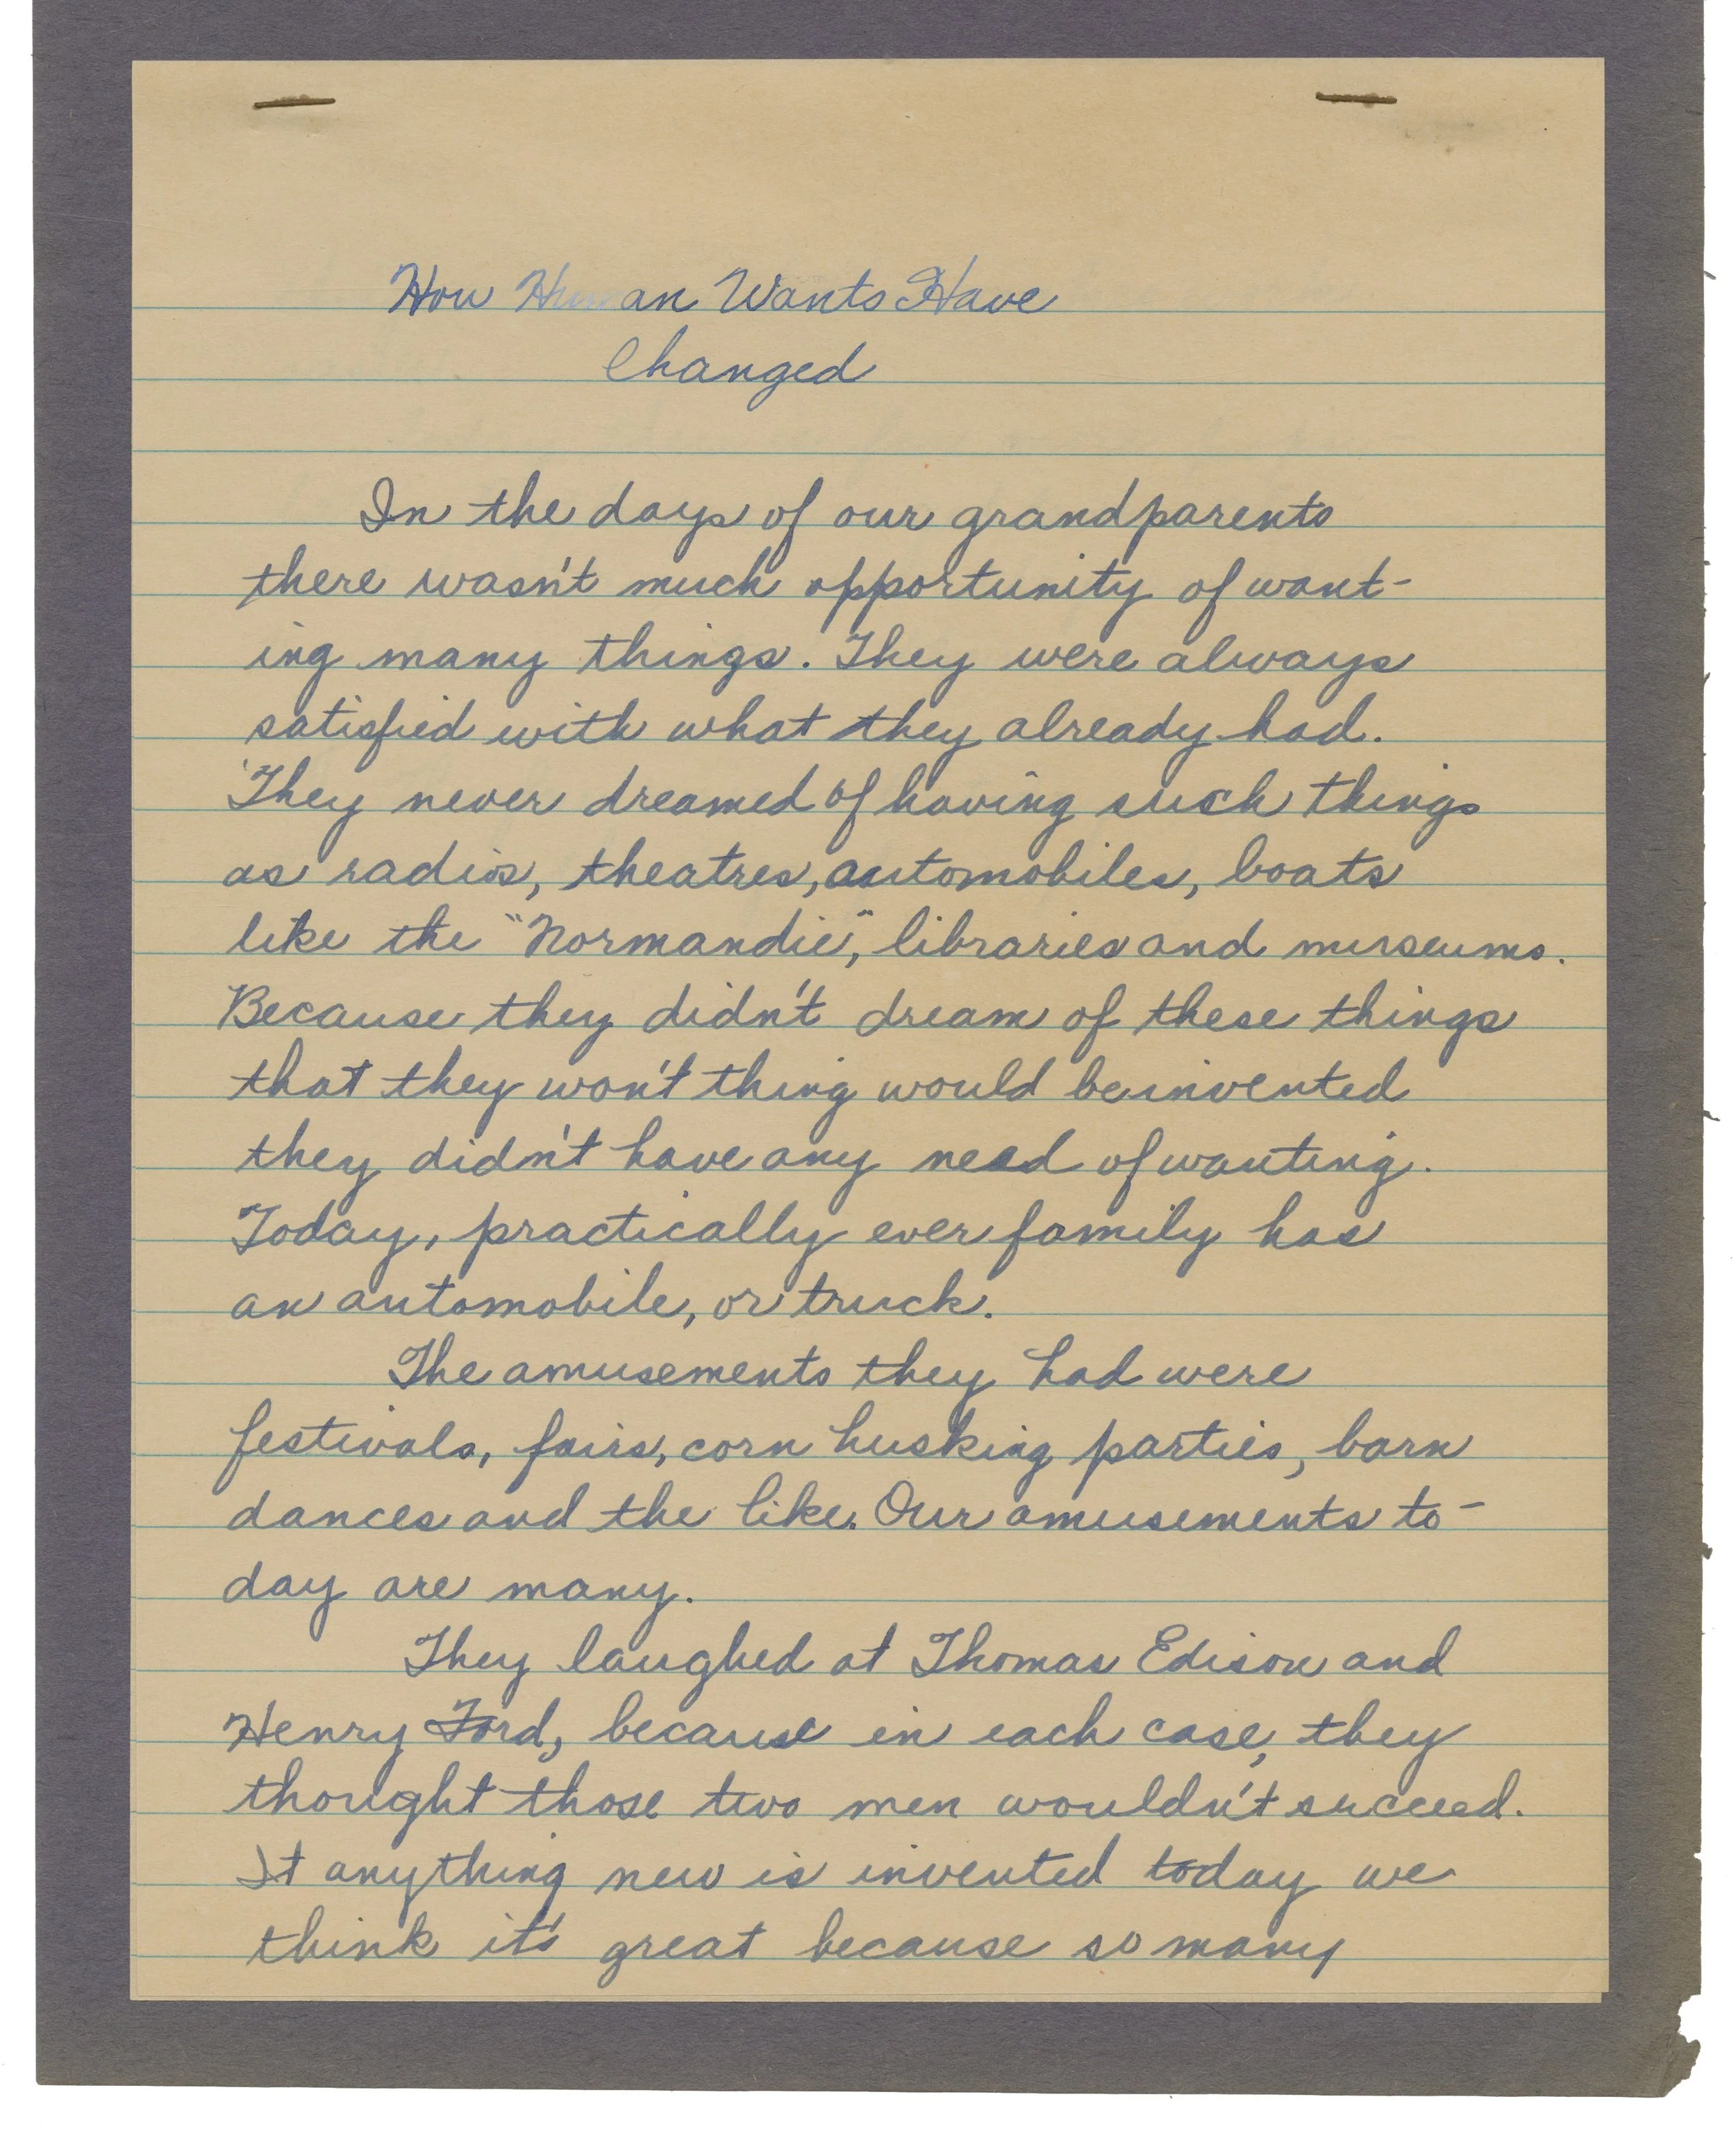 How Human Wants Have
Changed
In the days of our grandparents
there wasn't much opportunity of want-
ing many things. They were always
satisfied with what they already had.
They never dreamed of having such things
as radios, theatres, automobiles, boats
like the "Normandie", libraries and museums.
Because they didn't dream of these things
that they won't thing would be invented
they didn't have any need of wanting.
Today, practically ever family has
an automobile, or truck.
The amusements they had were
festivals, fairs, corn husking parties, barn
dances and the like. Our amusements to-
day are many.
They laughed at Thomas Edison and
Henry Ford, because in each case, they
thought those two men wouldn't succeed.
It anything new is invented today we
think it's great because so many